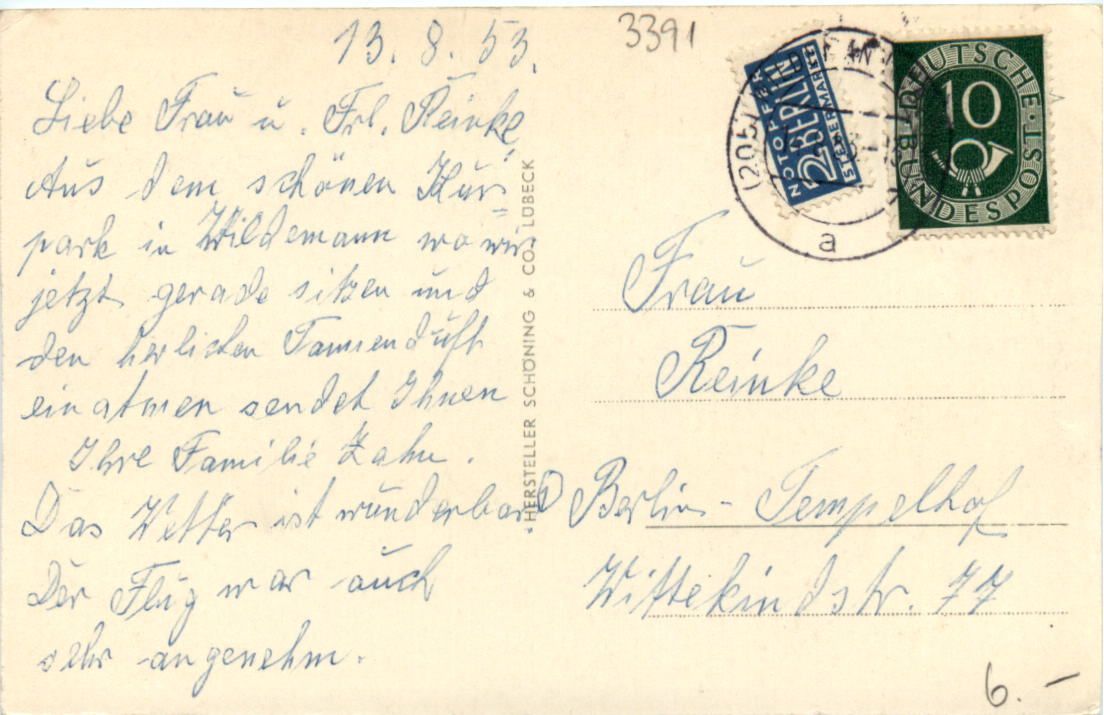 13. 8. 53.
3391
Liebe Frau u. Frl. Reinke
Aus dem schönen Kur=
park in Wildemann wo wir
jetzt gerade sitzen und
den herlichen Tannenduft
einatmen sendet Ihnen
Ihre Familie Zahn.
Das Wetter ist wunderbar
Der Flug war auch
sehr angenehm.
HERSTELLER SCHÖNING & CO., LÜBECK
NOTOPFER
2 BERLIN
STEUERMARKE
DEUTSCHE
10
BUNDESPOST
(20b)
a
Frau
Reinke
Berlin-Tempelhof
Wittekindstr. 77
6.-